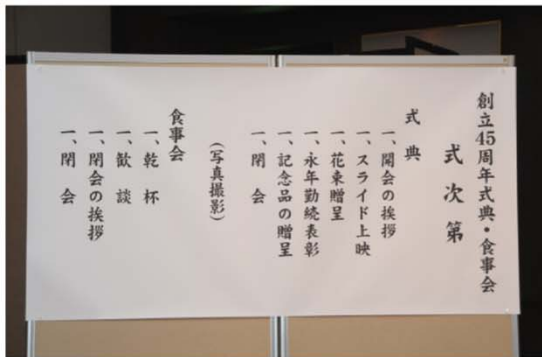 創立45周年式典・食事会
式次第
式典
一、開会の挨拶
一、スライド上映
一、花束贈呈
一、永年勤続表彰
一、記念品の贈呈
一、閉会
(写真撮影)
食事会
一、乾杯
一、歓談
一、閉会の挨拶
一、閉会